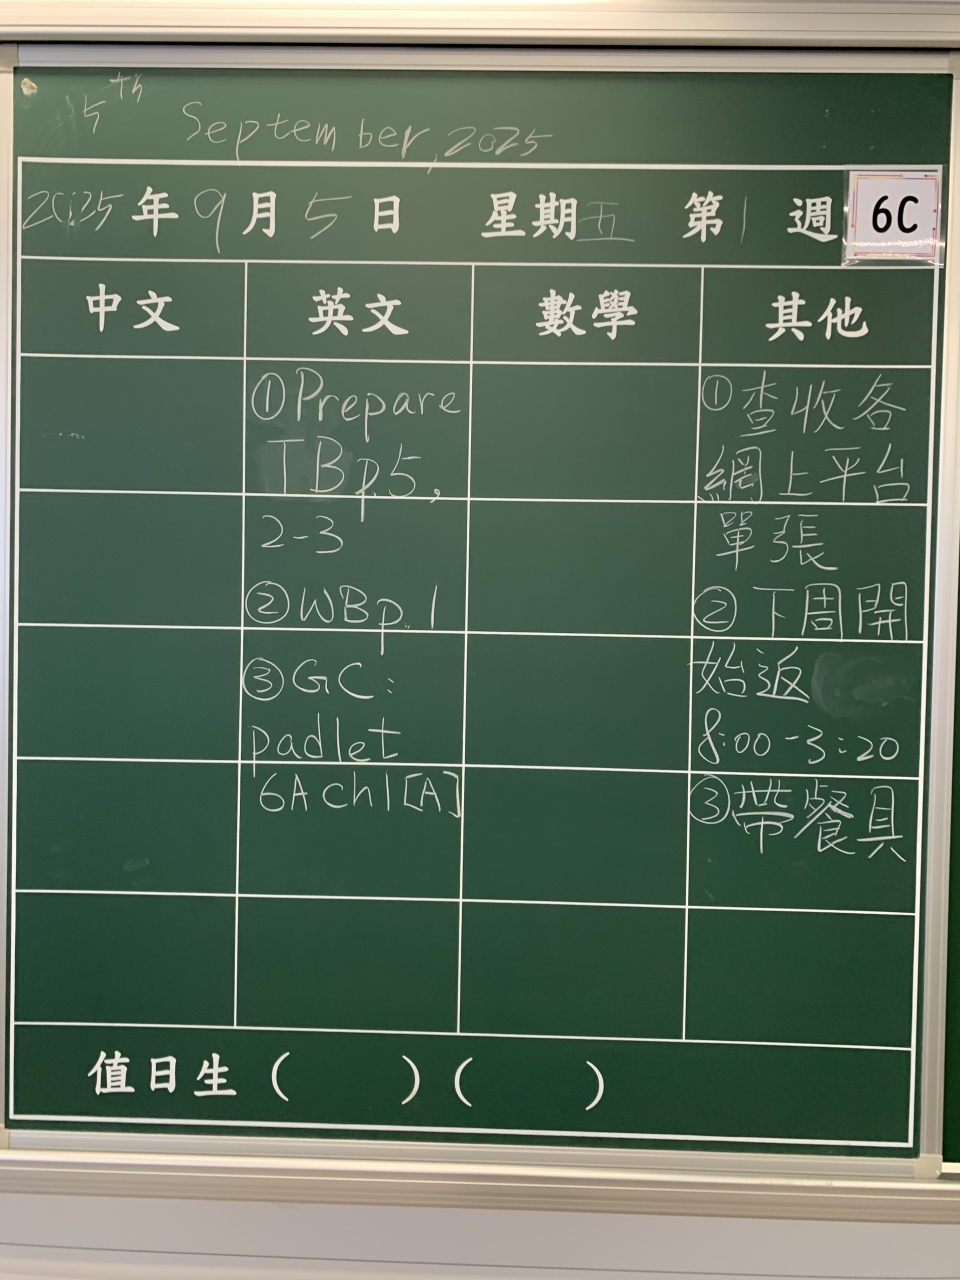 5th September, 2025
2025年9月5日 星期五 第1週 6C
中文 英文 數學 其他
①Prepare
TBp.5,
2-3
②WBp.1
③GC:
padlet
6Ach1[A]
①查收各
網上平台
單張
②下周開
始返
8:00-3:20
③帶餐具
值日生 ( ) ( )